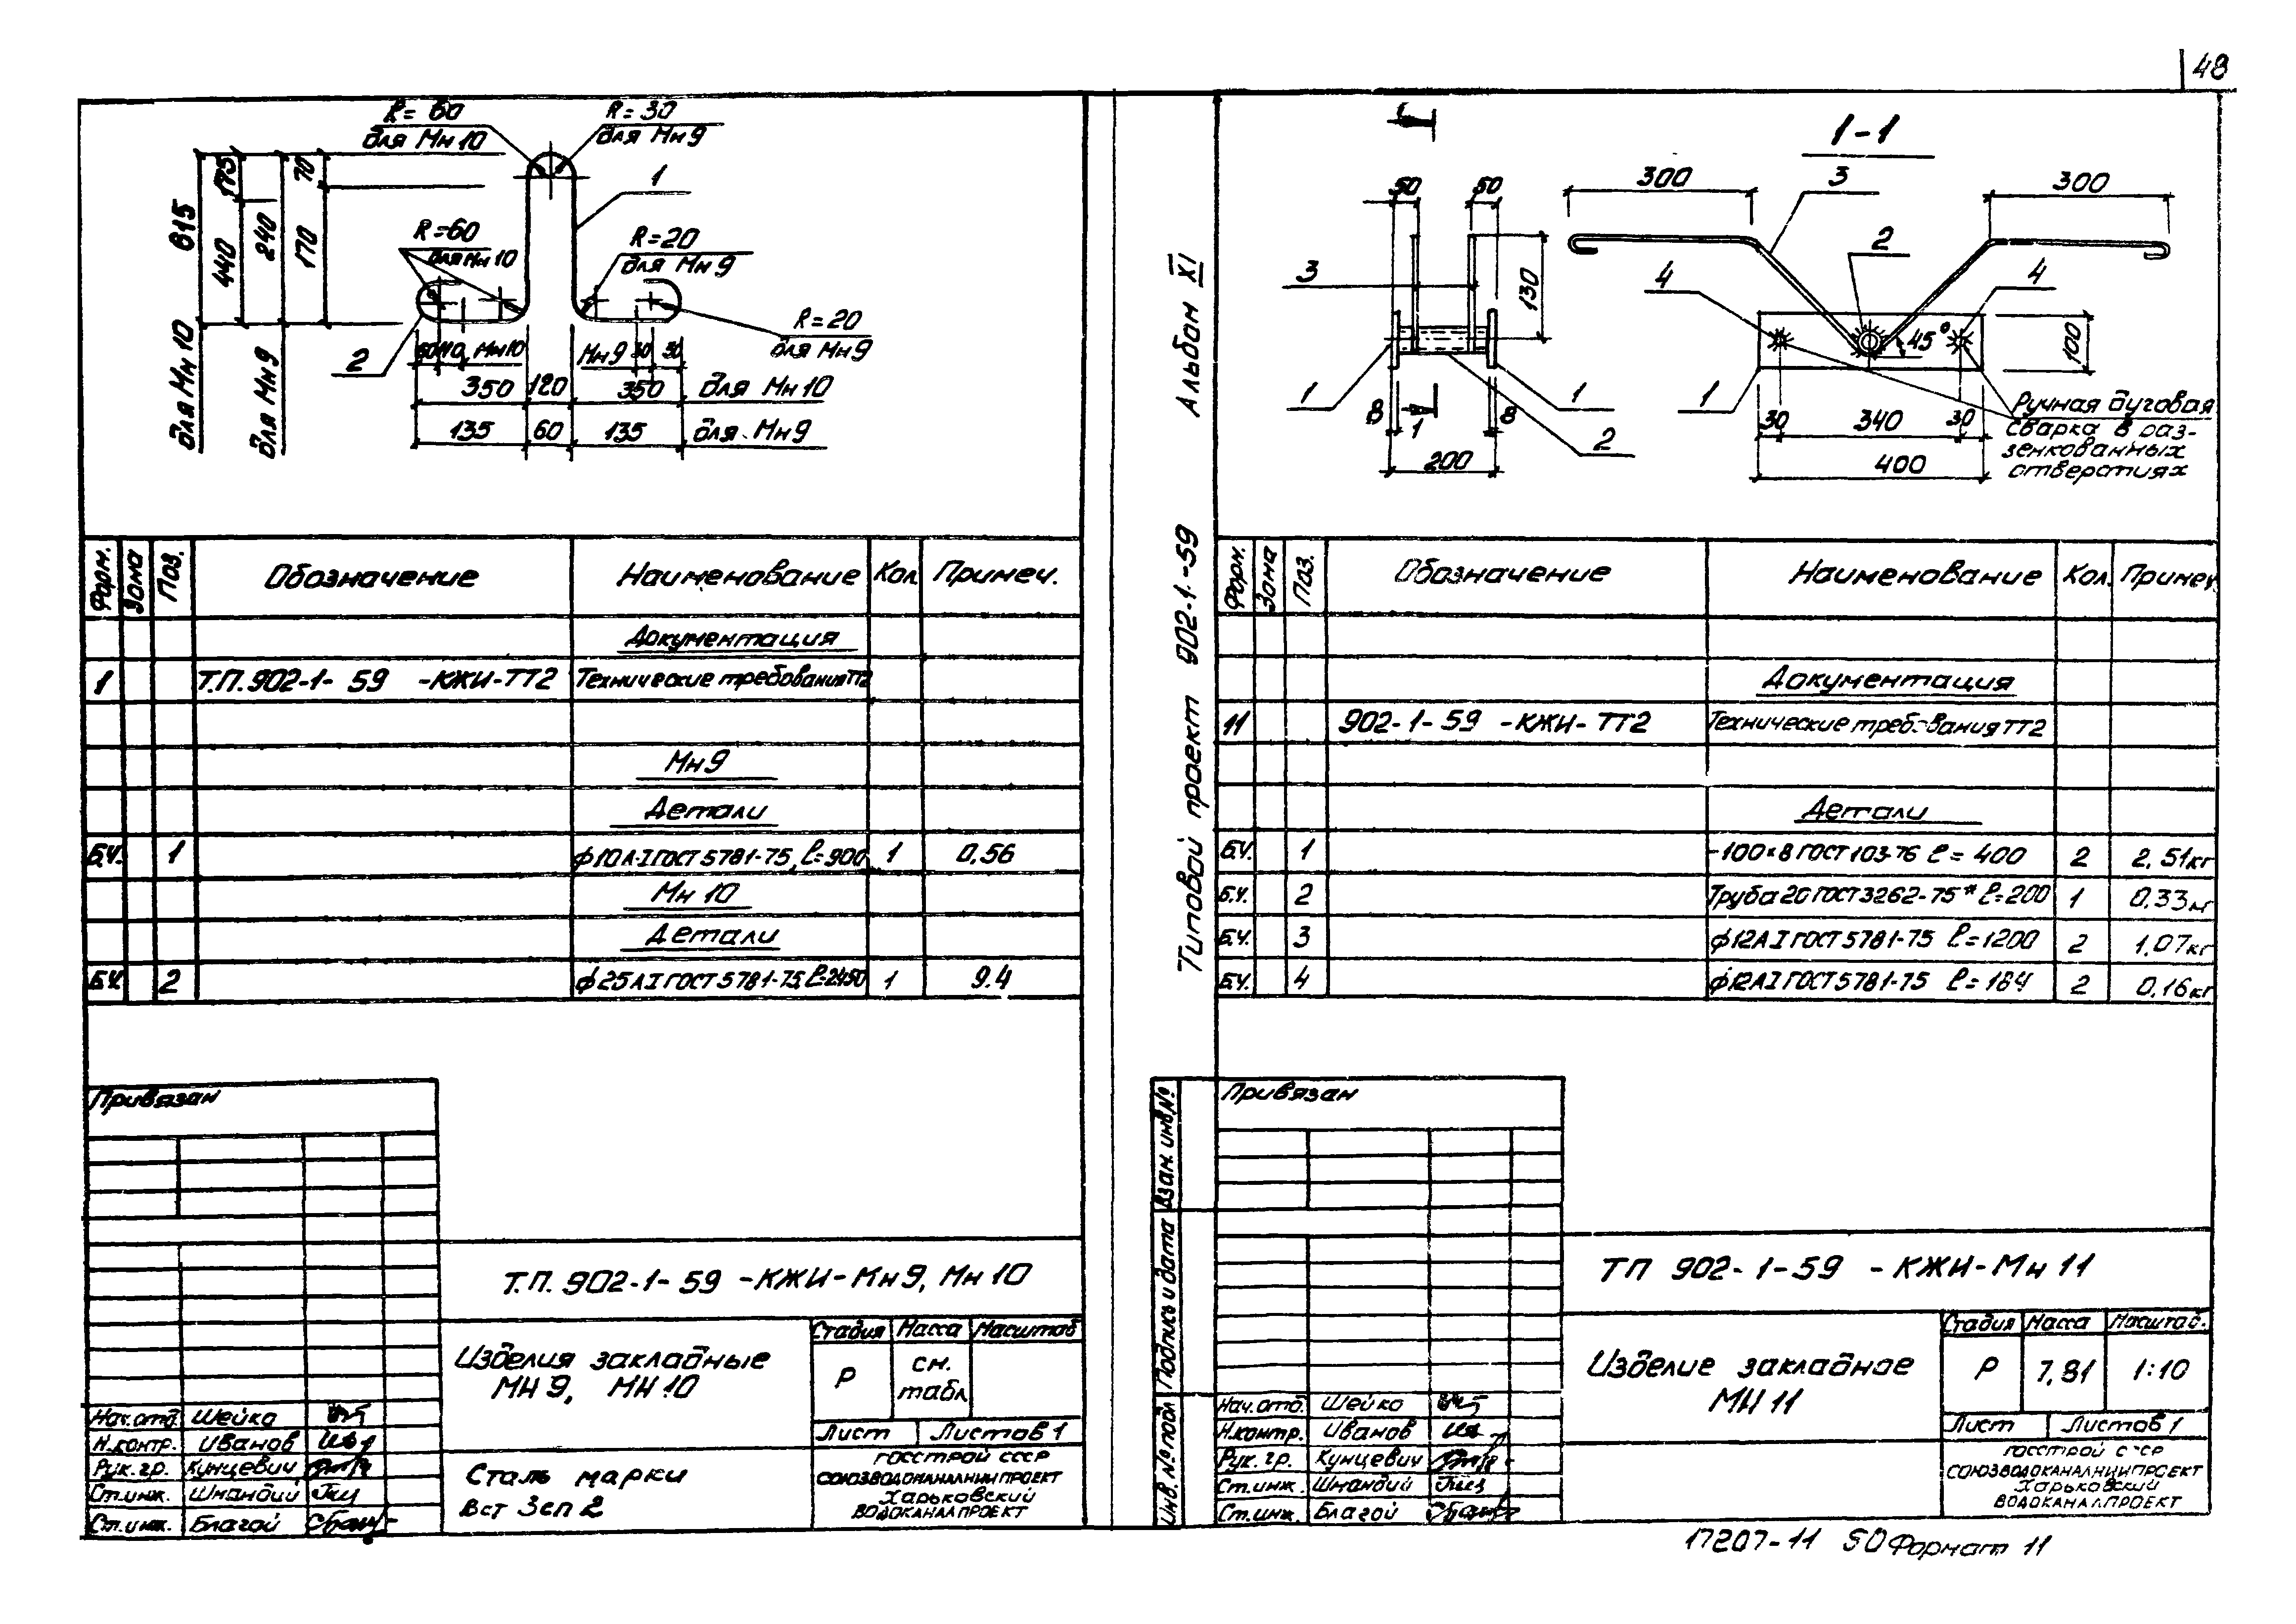 48
R=60
для Мн10
R=30
для Мн9
1
615
175
440
240
70
170
для Мн10
для Мн9
R=60
для Мн10
R=20
для Мн9
R=20
для Мн9
2
60
110
Мн10
Мн9
30
30
350
120
350
для Мн10
135
60
135
для Мн9
Форм.
Зона
Поз.
Обозначение
Наименование
Кол.
Примеч.
Документация
1 Т.П.902-1- 59 -КЖИ-ТТ2 Технические требования ТТ2
Мн9
Детали
Б.Ч. 1 ф10А-I ГОСТ 5781-75, ℓ=900 1 0,56
Мн 10
Детали
Б.Ч. 2 ф25АI ГОСТ 5781-75, ℓ=2450 1 9.4
Привязан
Т.П. 902-1-59 -КЖИ-Мн9, Мн10
Изделия закладные
МН 9, МН 10
Стадия Масса Масштаб
Р
см.
табл.
Лист Листов 1
Нач.отд. Шейко
Н.контр. Иванов
Рук.гр. Кунцевич
Ст.инж. Шмандий
Ст.инж. Благой
Сталь марки
Вст 3сп 2
ГОССТРОЙ СССР
СОЮЗВОДОКАНАЛНИИПРОЕКТ
Харьковский
ВОДОКАНАЛПРОЕКТ
Альбом XI
Типовой проект 902-1-59
1
50
50
3
130
1
1
8
1
8
2
200
1-1
300
3
300
2
4
4
45°
100
1
30
340
30
400
Ручная дуговая
сварка в раз-
зенкованных
отверстиях
Форм.
Зона
Поз.
Обозначение
Наименование
Кол.
Примеч.
Документация
11 902-1-59 -КЖИ-ТТ2 Технические требования ТТ2
Детали
Б.Ч. 1 -100×8 ГОСТ 103-76 ℓ= 400 2 2,51кг
Б.Ч. 2 Труба 20 ГОСТ 3262-75* ℓ=200 1 0,33кг
Б.Ч. 3 ф12АI ГОСТ 5781-75 ℓ=1200 2 1,07кг
Б.Ч. 4 ф12АI ГОСТ 5781-75 ℓ= 184 2 0,16кг
Взам. инв.№
Подпись и дата
Инв.№ подл
Привязан
ТП 902-1-59 -КЖИ-Мн 11
Изделие закладное
МН 11
Стадия Масса Масштаб.
Р 7,81 1:10
Лист Листов 1
Нач.отд. Шейко
Н.контр. Иванов
Рук. гр. Кунцевич
Ст.инж. Шмандий
Ст.инж. Благой
ГОССТРОЙ СССР
СОЮЗВОДОКАНАЛНИИПРОЕКТ
Харьковский
ВОДОКАНАЛПРОЕКТ
17207-11 50 Формат 11